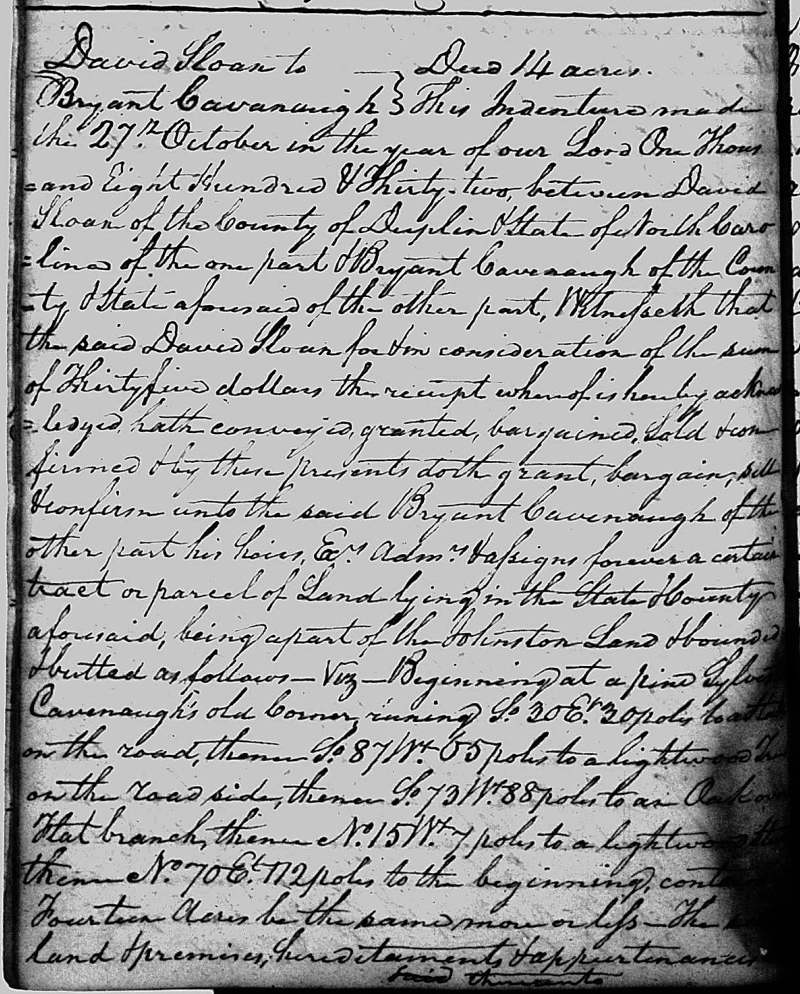 David Sloan to } Deed 14 acres.
Bryant Cavanaugh } This Indenture made
the 27th October in the year of our Lord One Thous
=and Eight Hundred & Thirty-two, between David
Sloan of the County of Duplin & State of North Caro
=lina of the one part & Bryant Cavenaugh of the Coun
-ty & State aforesaid of the other part, Witnesseth that
the said David Sloan for & in consideration of the sum
of Thirtyfive dollars the receipt whereof is hereby acknow
=ledged, hath conveyed, granted, bargained, Sold & con
firmed & by these presents doth grant, bargain, sell
& confirm unto the said Bryant Cavenaugh of the
other part his heirs, Exrs Admrs & assigns forever a certain
tract or parcel of Land lying in the State & County
aforesaid, being apart of the Johnston Land & bounded
& butted as follows – Viz – Beginning at a pine
Cavenaugh's old Corner, runing So 30 Et 30 poles to a
on the road, thence So 87 Wt 65 poles to a lightwood
on the road side, thence So 73 Wt 88 poles to an Oak on
Flat branch, thence No 15 Wt 7 poles to a lightwood
thence No 70 Et 172 poles to the beginning,
Fourteen Acres be the same more or less – The
land & premises, hereditaments & appurtenances
said